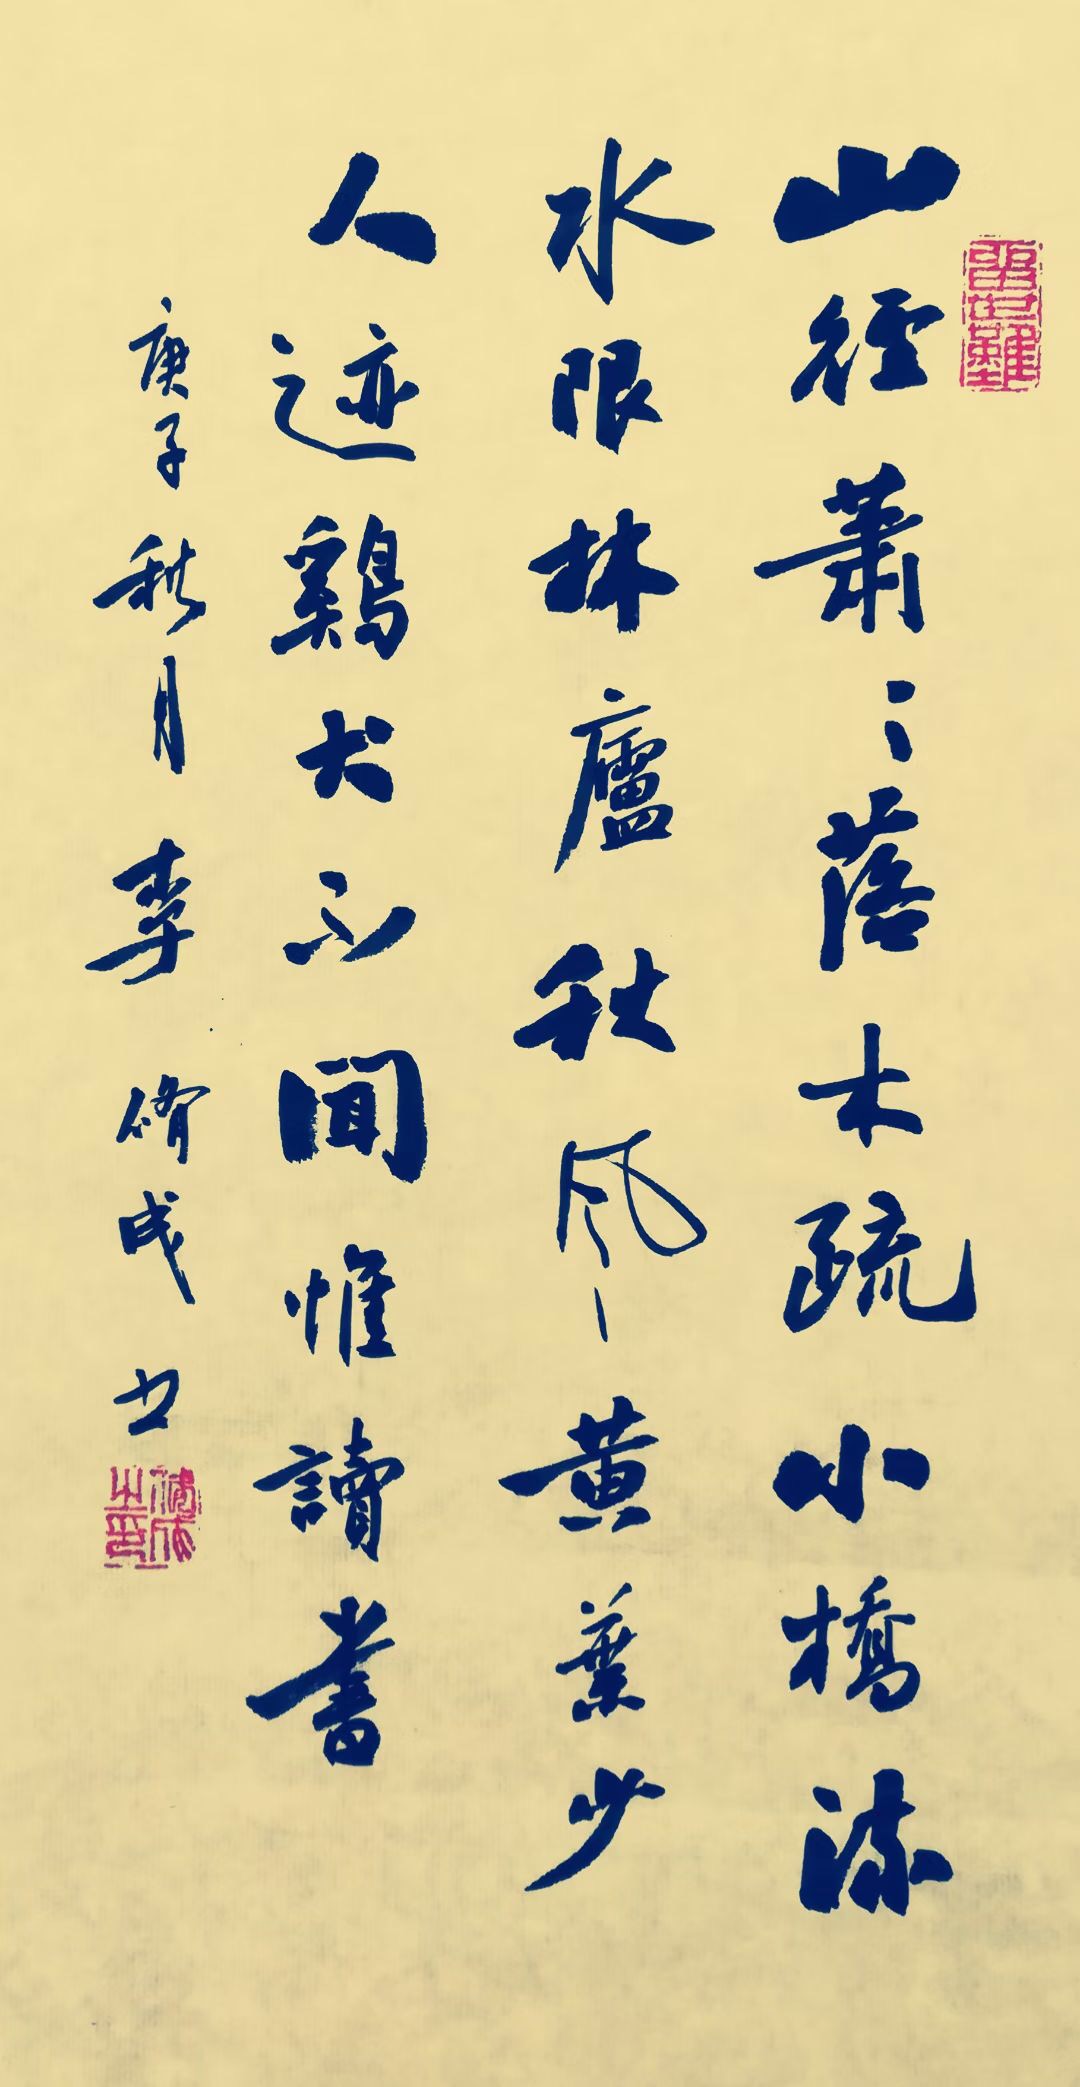 山徑蕭〻落木疏小橋流
水限林廬秋風〻黄葉少
人迹鷄犬不聞惟讀書
庚子秋月李脩成书